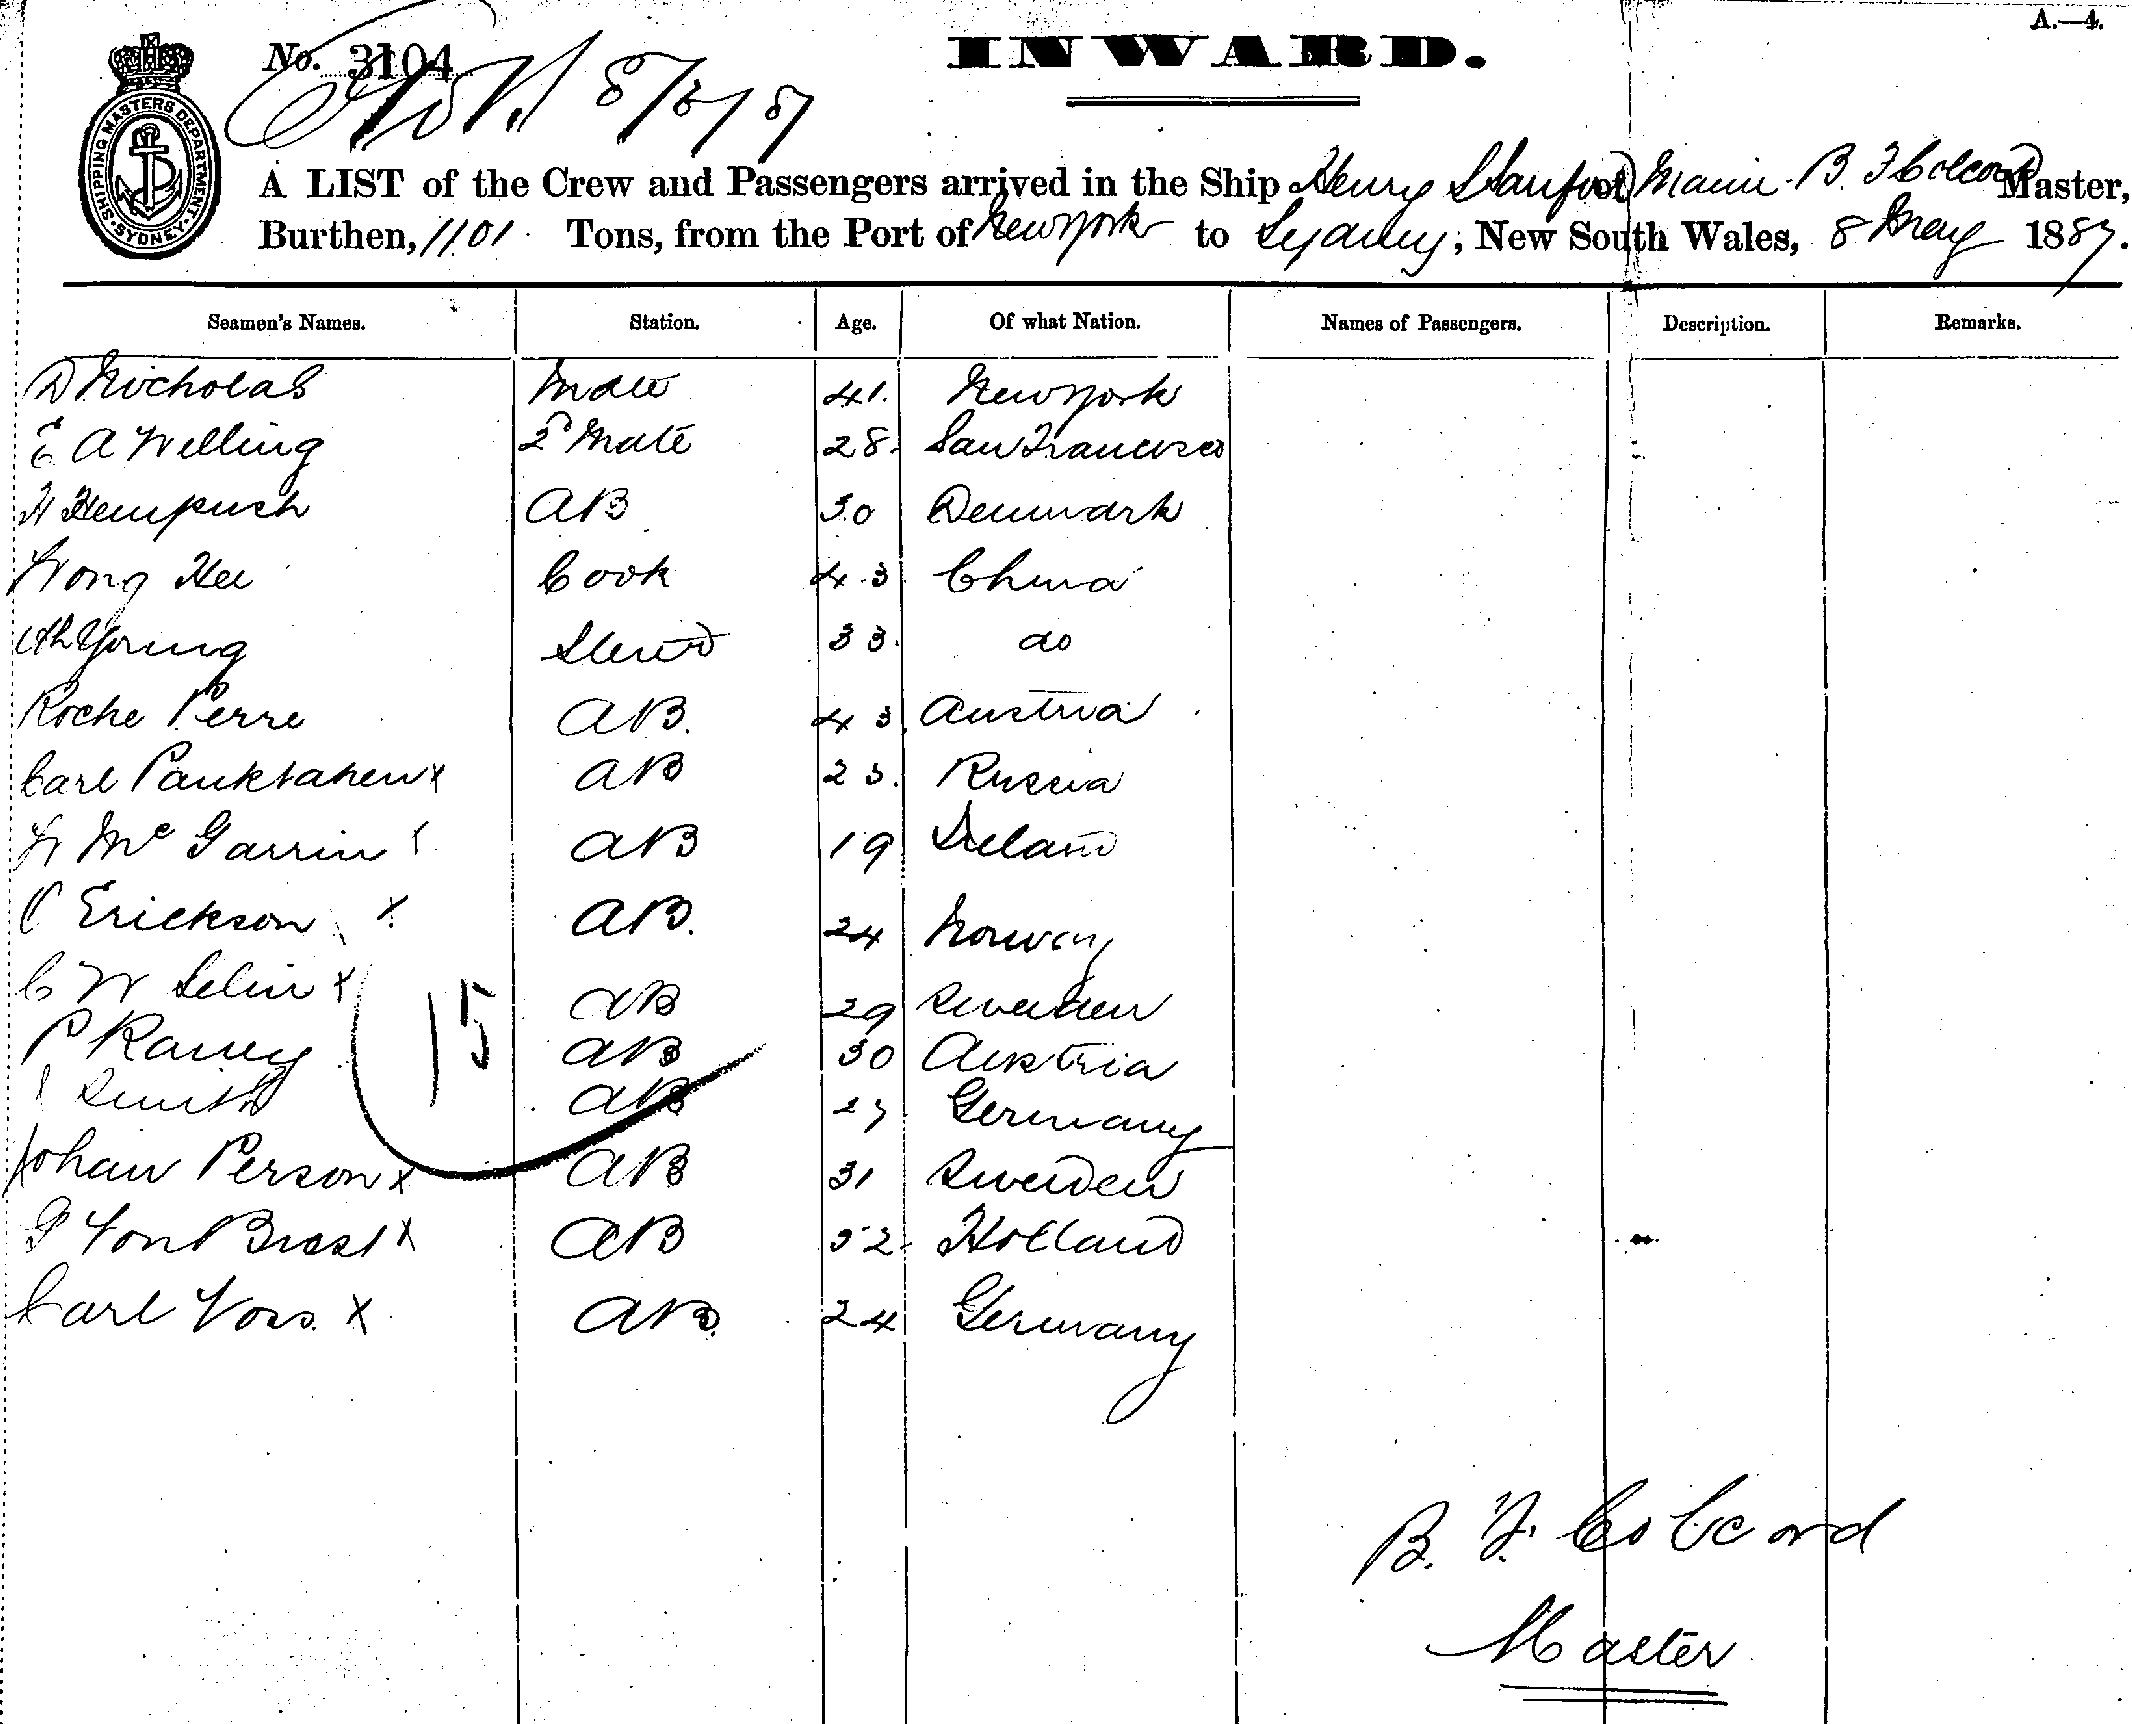 A.—4.
No. 3104
INWARD.
SHIPPING MASTERS DEPARTMENT. SYDNEY
A LIST of the Crew and Passengers arrived in the Ship Henry Sanford Maine B. F Colcord Master,
Burthen, 1101 Tons, from the Port of New York to Sydney, New South Wales, 8 May 1887.
Seamen's Names. Station. Age. Of what Nation. Names of Passengers. Description. Remarks.
D Nicholas Mate 41. New York
E A Welling 2d Mate 28. San Francisco
H AB 30 Denmark
Wong Hee Cook 43 China
Ah Young Stewd 33. do
Roche Perre AB. 43 Austria
Carl x AB 23. Russia
Mc Garrin AB 19 Ireland
Erickson x AB. 24 Norway
C W Selin x AB 29 Sweeden
15
P AB 30 Austria
Smith AB Germany
Johan Person x AB 31 Sweeden
x AB 32. Holland
Carl Voss. x AB. 24 Germany
B. F. Colcord
Master